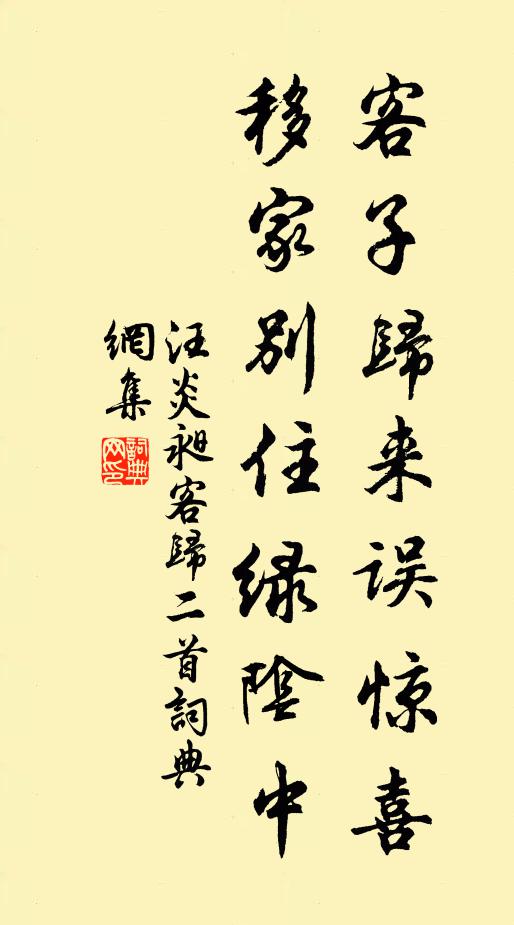 客子歸来误惊喜
移家别住绿陰中
汪炎昶客歸二首詞典
網集
詞典网印